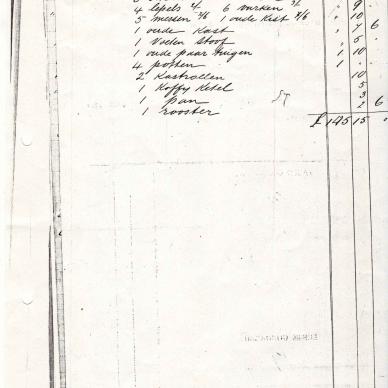 4 lepels 2/ 6 vorken 3/ " 9 "
5 messen 2/6 1 oude Kist 7/6 " 10 "
1 oude Kast " 7 6
1 Voeten Stoof " 5 "
1 oude paar tuigen 1 10 "
4 potten 1 "
2 Kastrollen 10
1 Koffy Ketel 5
1 pan 3
1 rooster 2 6
£ 145 15 "